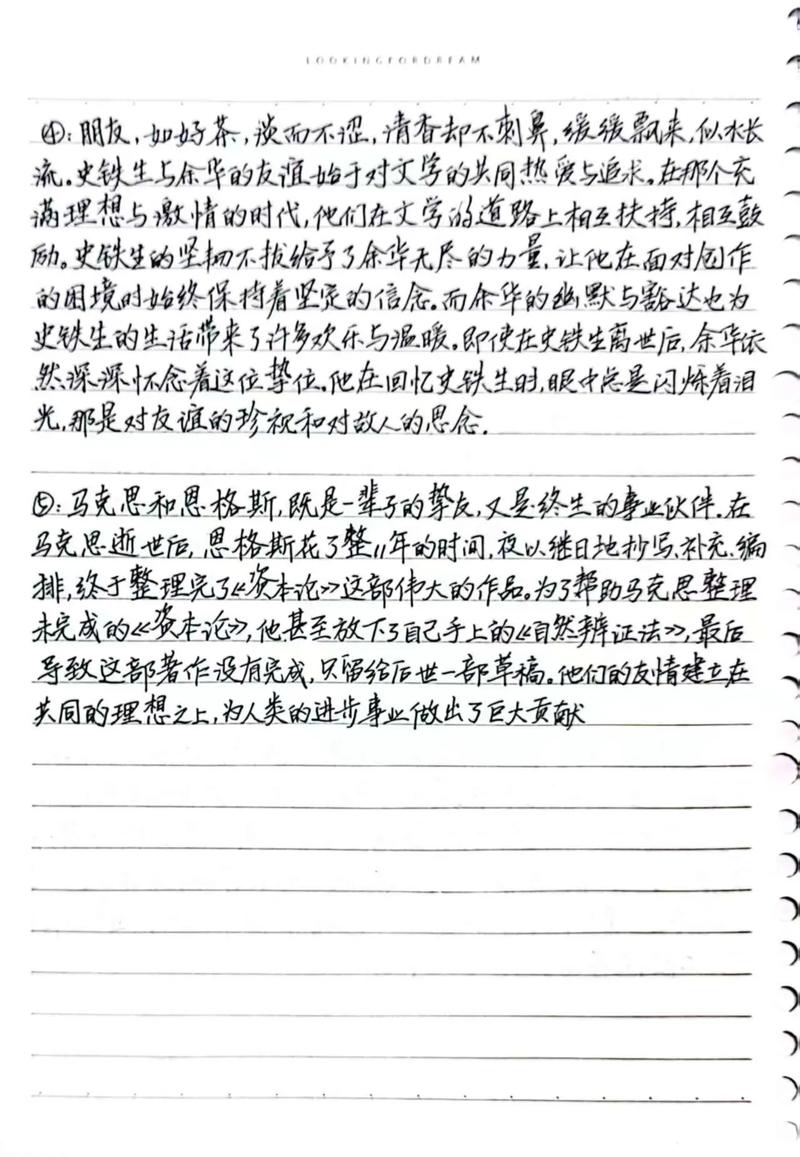 LOOKINGFORDREAM
④:朋友,如好茶,淡而不涩,清香却不刺鼻,缓缓飘来,似水长
流。史铁生与余华的友谊始于对文学的共同热爱与追求。在那个充
满理想与激情的时代,他们在文学的道路上相互扶持,相互鼓
励。史铁生的坚韧不拔给予了余华无尽的力量,让他在面对创作
的困境时始终保持着坚定的信念。而余华的幽默与豁达也为
史铁生的生活带来了许多欢乐与温暖。即使在史铁生离世后,余华依
然深深怀念着这位挚位。他在回忆史铁生时,眼中总是闪烁着泪
光,那是对友谊的珍视和对故人的思念.
⑤:马克思和恩格斯,既是一辈子的挚友,又是终生的事业伙伴.在
马克思逝世后,恩格斯花了整11年的时间,夜以继日地抄写、补充、编
排,终于整理完了《资本论》这部伟大的作品。为了帮助马克思整理
未完成的《资本论》,他甚至放下了自己手上的《自然辨证法》,最后
导致这部著作没有完成,只留给后世一部草稿。他们的友情建立在
共同的理想之上,为人类的进步事业做出了巨大贡献